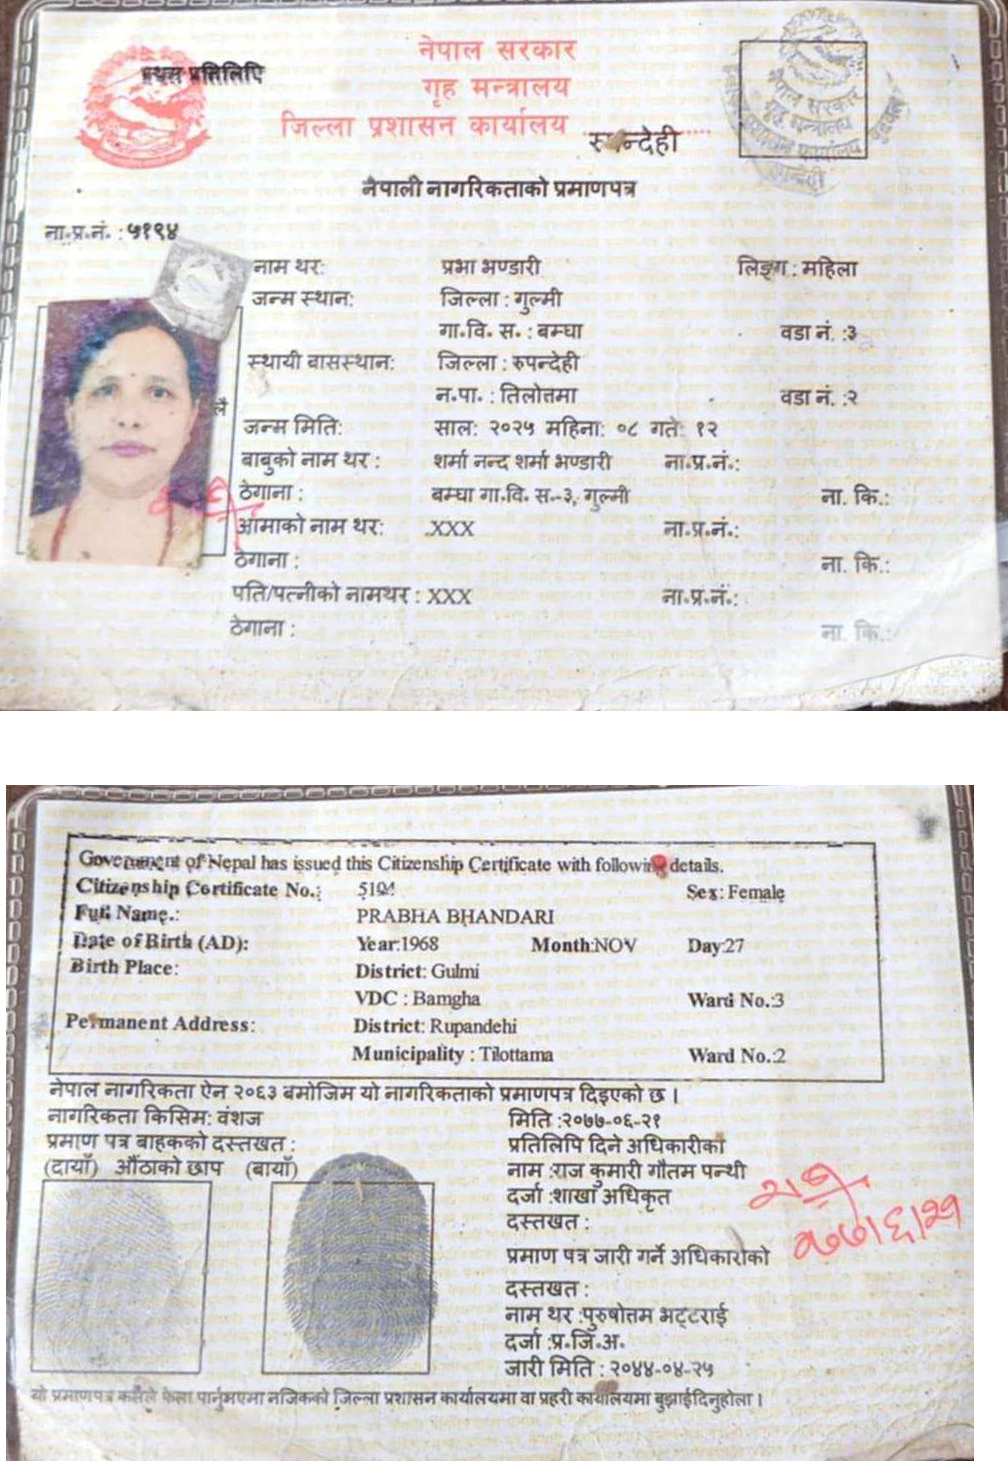 नेपाल सरकार
गृह मन्त्रालय
जिल्ला प्रशासन कार्यालय रुपन्देही
प्रथम प्रतिलिपि
नेपाल सरकार
गृह मन्त्रालय
नेपाली नागरिकताको प्रमाणपत्र
ना॰प्र॰नं॰ : ५१९४
नाम थर: प्रभा भण्डारी लिङ्ग : महिला
जन्म स्थान: जिल्ला : गुल्मी
गा॰वि॰ स॰ : बम्घा वडा नं. :३
स्थायी बासस्थान: जिल्ला : रुपन्देही
न॰पा॰ : तिलोत्तमा वडा नं. :२
जन्म मिति: साल: २०२५ महिना: ०८ गते: १२
बाबुको नाम थर : शर्मा नन्द शर्मा भण्डारी ना॰प्र॰नं॰:
ठेगाना : बम्घा गा॰वि॰ स॰-३, गुल्मी ना. कि.:
आमाको नाम थर: XXX ना॰प्र॰नं॰:
ठेगाना : ना. कि.:
पति/पत्नीको नामथर : XXX ना॰प्र॰नं॰:
ठेगाना : ना. कि.:
Government of Nepal has issued this Citizenship Certificate with following details.
Citizenship Certificate No.: 5194 Sex: Female
Full Name.: PRABHA BHANDARI
Date of Birth (AD): Year:1968 Month:NOV Day:27
Birth Place: District: Gulmi
VDC : Bamgha Ward No.:3
Permanent Address: District: Rupandehi
Municipality : Tilottama Ward No.:2
नेपाल नागरिकता ऐन २०६३ बमोजिम यो नागरिकताको प्रमाणपत्र दिइएको छ ।
नागरिकता किसिम: वंशज मिति :२०७७-०६-२१
प्रमाण पत्र बाहकको दस्तखत : प्रतिलिपि दिने अधिकारीको
(दायाँ) औंठाको छाप (बायाँ) नाम :राज कुमारी गौतम पन्थी
दर्जा :शाखा अधिकृत
दस्तखत :
प्रमाण पत्र जारी गर्ने अधिकारीको
दस्तखत :
नाम थर :पुरुषोत्तम भट्टराई
दर्जा :प्र॰जि॰अ॰
जारी मिति : २०४४-०४-२५
यो प्रमाणपत्र कसैले फेला पार्नुभएमा नजिकको जिल्ला प्रशासन कार्यालयमा वा प्रहरी कार्यालयमा बुझाईदिनुहोला ।